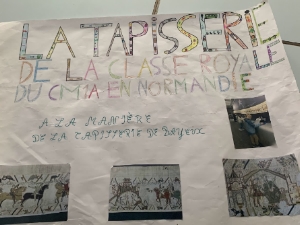 LA TAPISSERIE
DE LA CLASSE ROYALE
DU CM1A EN NORMANDIE
A LA MANIÈRE
DE LA TAPISSERIE DE BAYEUX